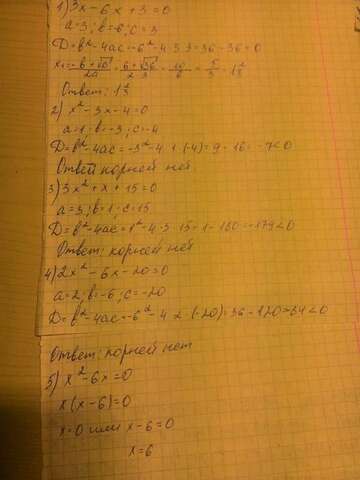 1) 3x - 6x + 3 = 0
a=3; b=-6; c=3
D=b²-4ac=-6²-4·3·3=36-36=0
Ответ: 1 2/3
2) x²-3x-4=0
a=1; b=-3; c=-4
D=b²-4ac=-3²-4·1·(-4)=9-16=-7<0
Ответ корней нет
3) 3x²+x+15=0
a=3; b=1; c=15
D=b²-4ac=1²-4·3·15=1-180=-179<0
Ответ: корней нет
4) 2x²-6x-20=0
a=2; b=-6; c=-20
D=b²-4ac=-6²-4·2·(-20)=36-120=-84<0
Ответ: корней нет
5) x²-6x=0
x(x-6)=0
x=0 или x-6=0
x=6